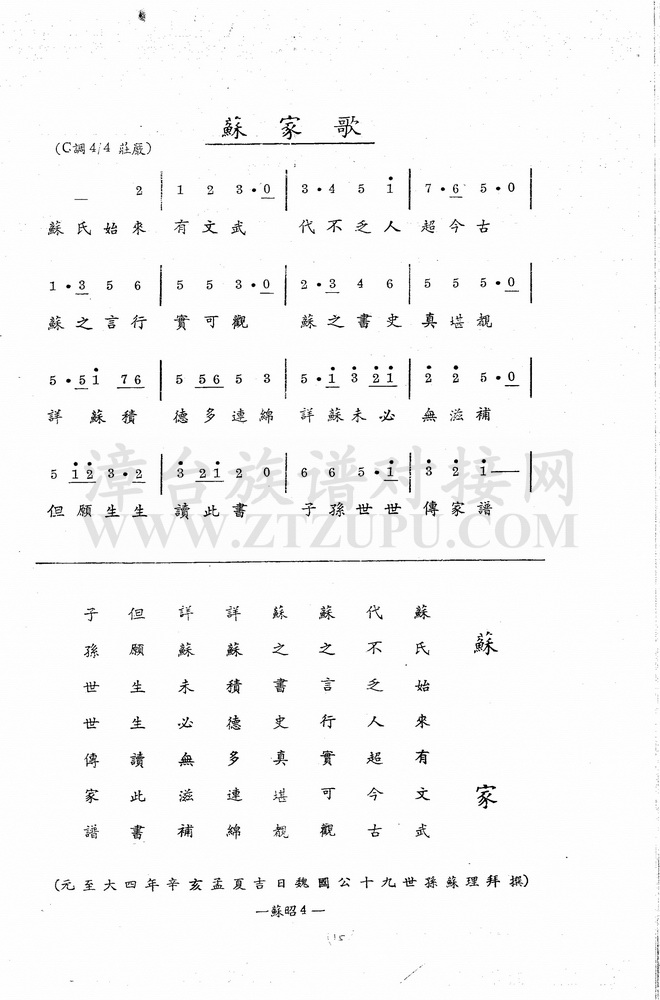 蘇家歌
(C調4/4 莊嚴)
2 | 1 2 3·0 | 3·4 5 i | 7·6 5·0 |
蘇氏始來 有文武 代不乏人 超今古
1·3 5 6 | 5 5 3·0 | 2·3 4 6 | 5 5 5·0 |
蘇之言行 實可觀 蘇之書史 真堪覩
5·5i 76 | 5 56 5 3 | 5·i 3 2i | 2 2 5·0 |
詳蘇積 德多連綿 詳蘇未必 無滋補
5 i2 3·2 | 3 2i 2 0 | 6 6 5·i | 3 2 i—— |
但願生生 讀此書 子孫世世 傳家譜
漳台族谱对接网
WWW.ZTZUPU.COM
蘇家
蘇氏始來有文武
代不乏人超今古
蘇之言行實可觀
蘇之書史真堪覩
詳蘇積德多連綿
詳蘇未必無滋補
但願生生讀此書
子孫世世傳家譜
(元至大四年辛亥孟夏吉日魏國公十九世孫蘇理拜撰)
—蘇昭4—
15